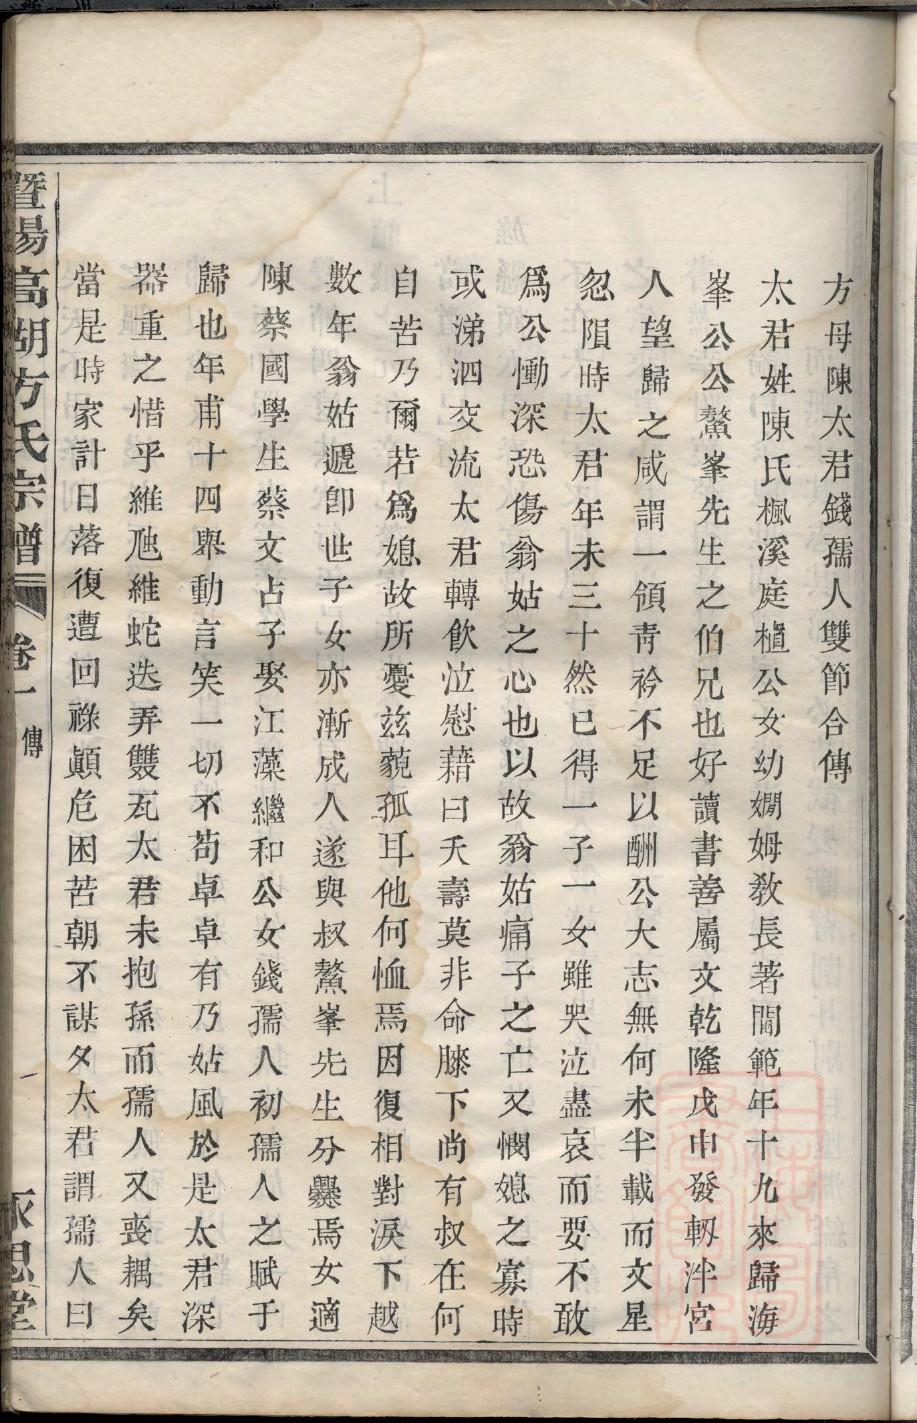 方母陳太君錢孺人雙節合傳
太君姓陳氏楓溪庭櫃公女幼嫻姆敎長著閫範年十九來歸海
峯公公鰲峯先生之伯兄也好讀書善屬文乾隆戊申發軔泮宮
人望歸之咸謂一領靑衿不足以酬公大志無何未半載而文星
忽隕時太君年未三十然已得一子一女雖哭泣盡哀而要不敢
爲公慟深恐傷翁姑之心也以故翁姑痛子之亡又憫媳之寡時
或涕泗交流太君轉飲泣慰藉曰夭壽莫非命膝下尚有叔在何
自苦乃爾若爲媳故所憂玆藐孤耳他何恤焉因復相對淚下越
數年翁姑遞卽世子女亦漸成人遂與叔鰲峯先生分爨焉女適
陳蔡國學生蔡文占子娶江藻繼和公女錢孺人初孺人之賦于
歸也年甫十四舉動言笑一切不苟卓卓有乃姑風於是太君深
器重之惜乎維虺維蛇迭弄雙瓦太君未抱孫而孺人又喪耦矣
當是時家計日落復遭回祿顚危困苦朝不謀夕太君謂孺人曰
暨陽高湖方氏宗譜 卷一 傳 永思堂